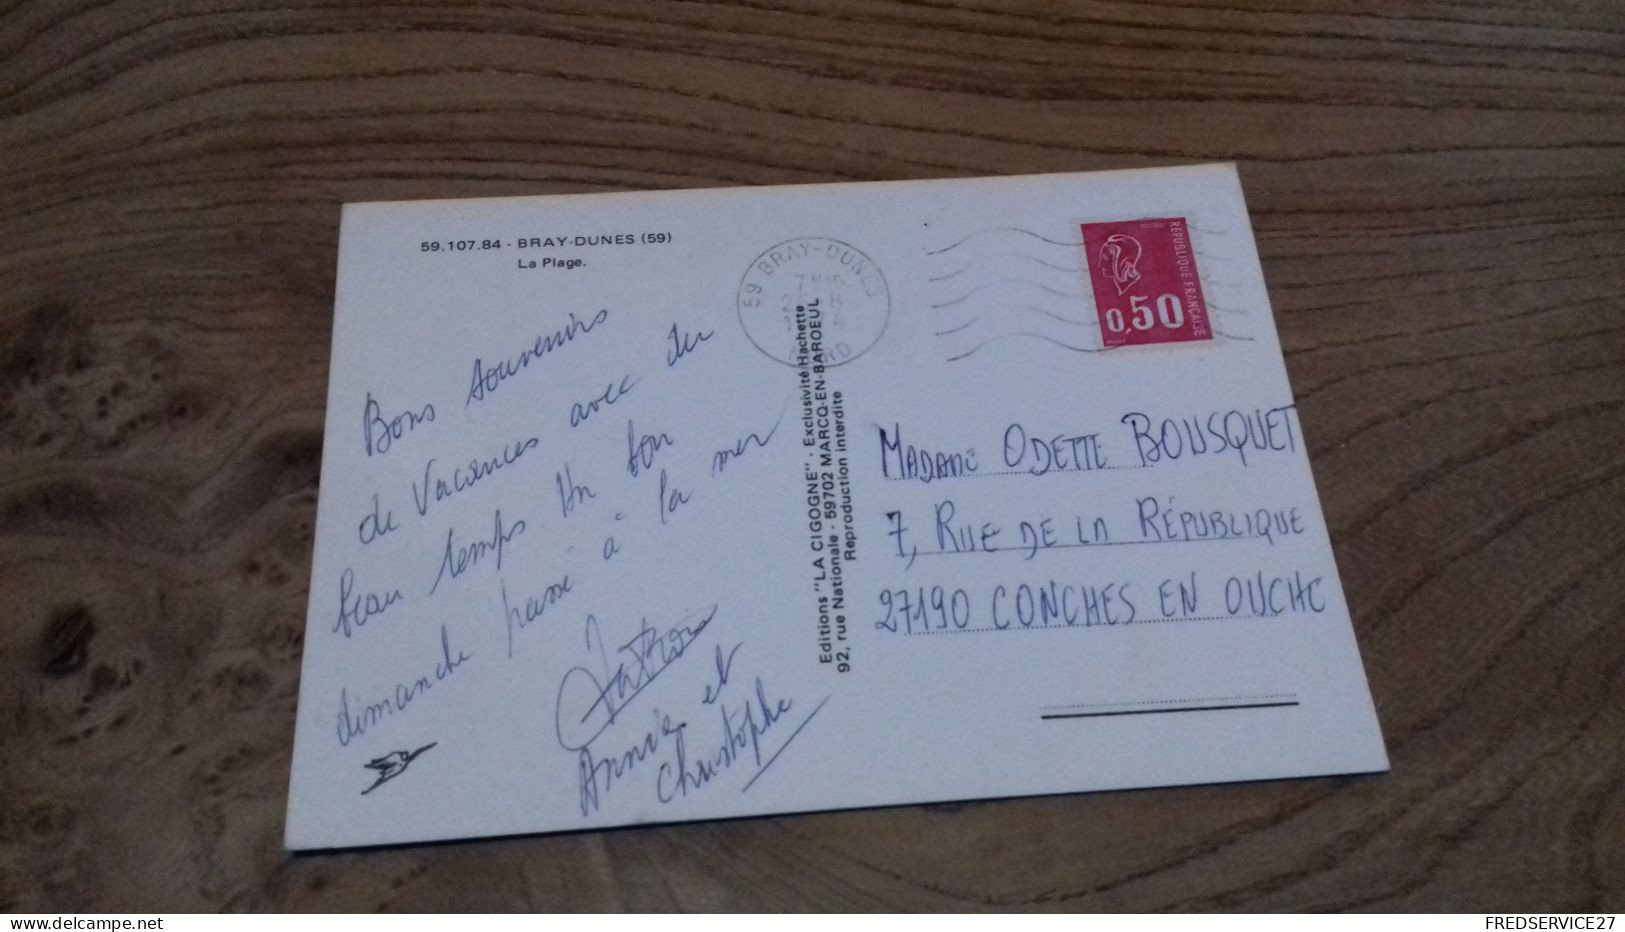 59.107.84 - BRAY-DUNES (59)
La Plage.
Bons souvenirs
de Vacances avec du
beau temps. Un bon
dimanche passé à la mer
Annie et
Christophe
59 BRAY-DUNES
NORD
Editions "LA CIGOGNE" - Exclusivité Hachette
92, rue Nationale - 59702 MARCQ-EN-BAROEUL
Reproduction interdite
REPUBLIQUE FRANÇAISE
0,50
MADAME ODETTE BOUSQUET
7, RUE DE LA RÉPUBLIQUE
27190 CONCHES EN OUCHE
delcampe.net
FREDSERVICE27